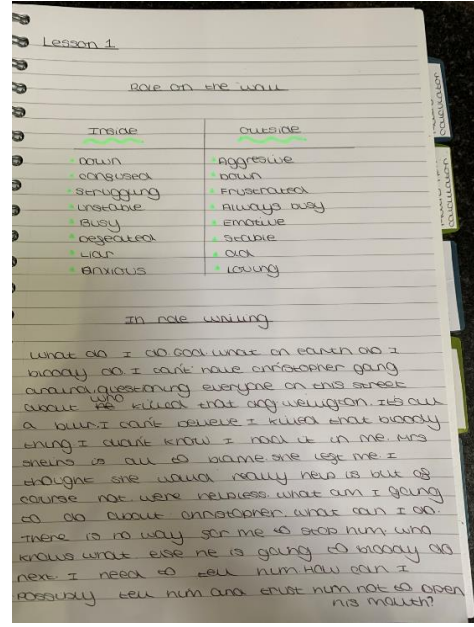 Lesson 1
Role on the wall
Inside
outside
Down
Aggresive
confused
Down
Struggling
Frustrated
unstable
Always busy
Busy
Emotive
Defeated
Stable
Liar
Old
Anxious
Loving
In role writing
what do I do. God what on earth do I
bloody do. I can't have christopher going
around, questioning everyone on this street
about who killed that dog weligton. Its all
a blur. I can't believe I killed that bloody
thing I didn't know I had it in me. Mrs
sheirs is all to blame she left me. I
thought she would really help is but of
course not. were helpless. what am I going
to do about christopher. what can I do.
There is no way for me to stop him. who
knows what else he is going to bloody do
next. I need to tell him. How can I
possibly tell him and trust him not to open
his mouth?
calculator
calculator